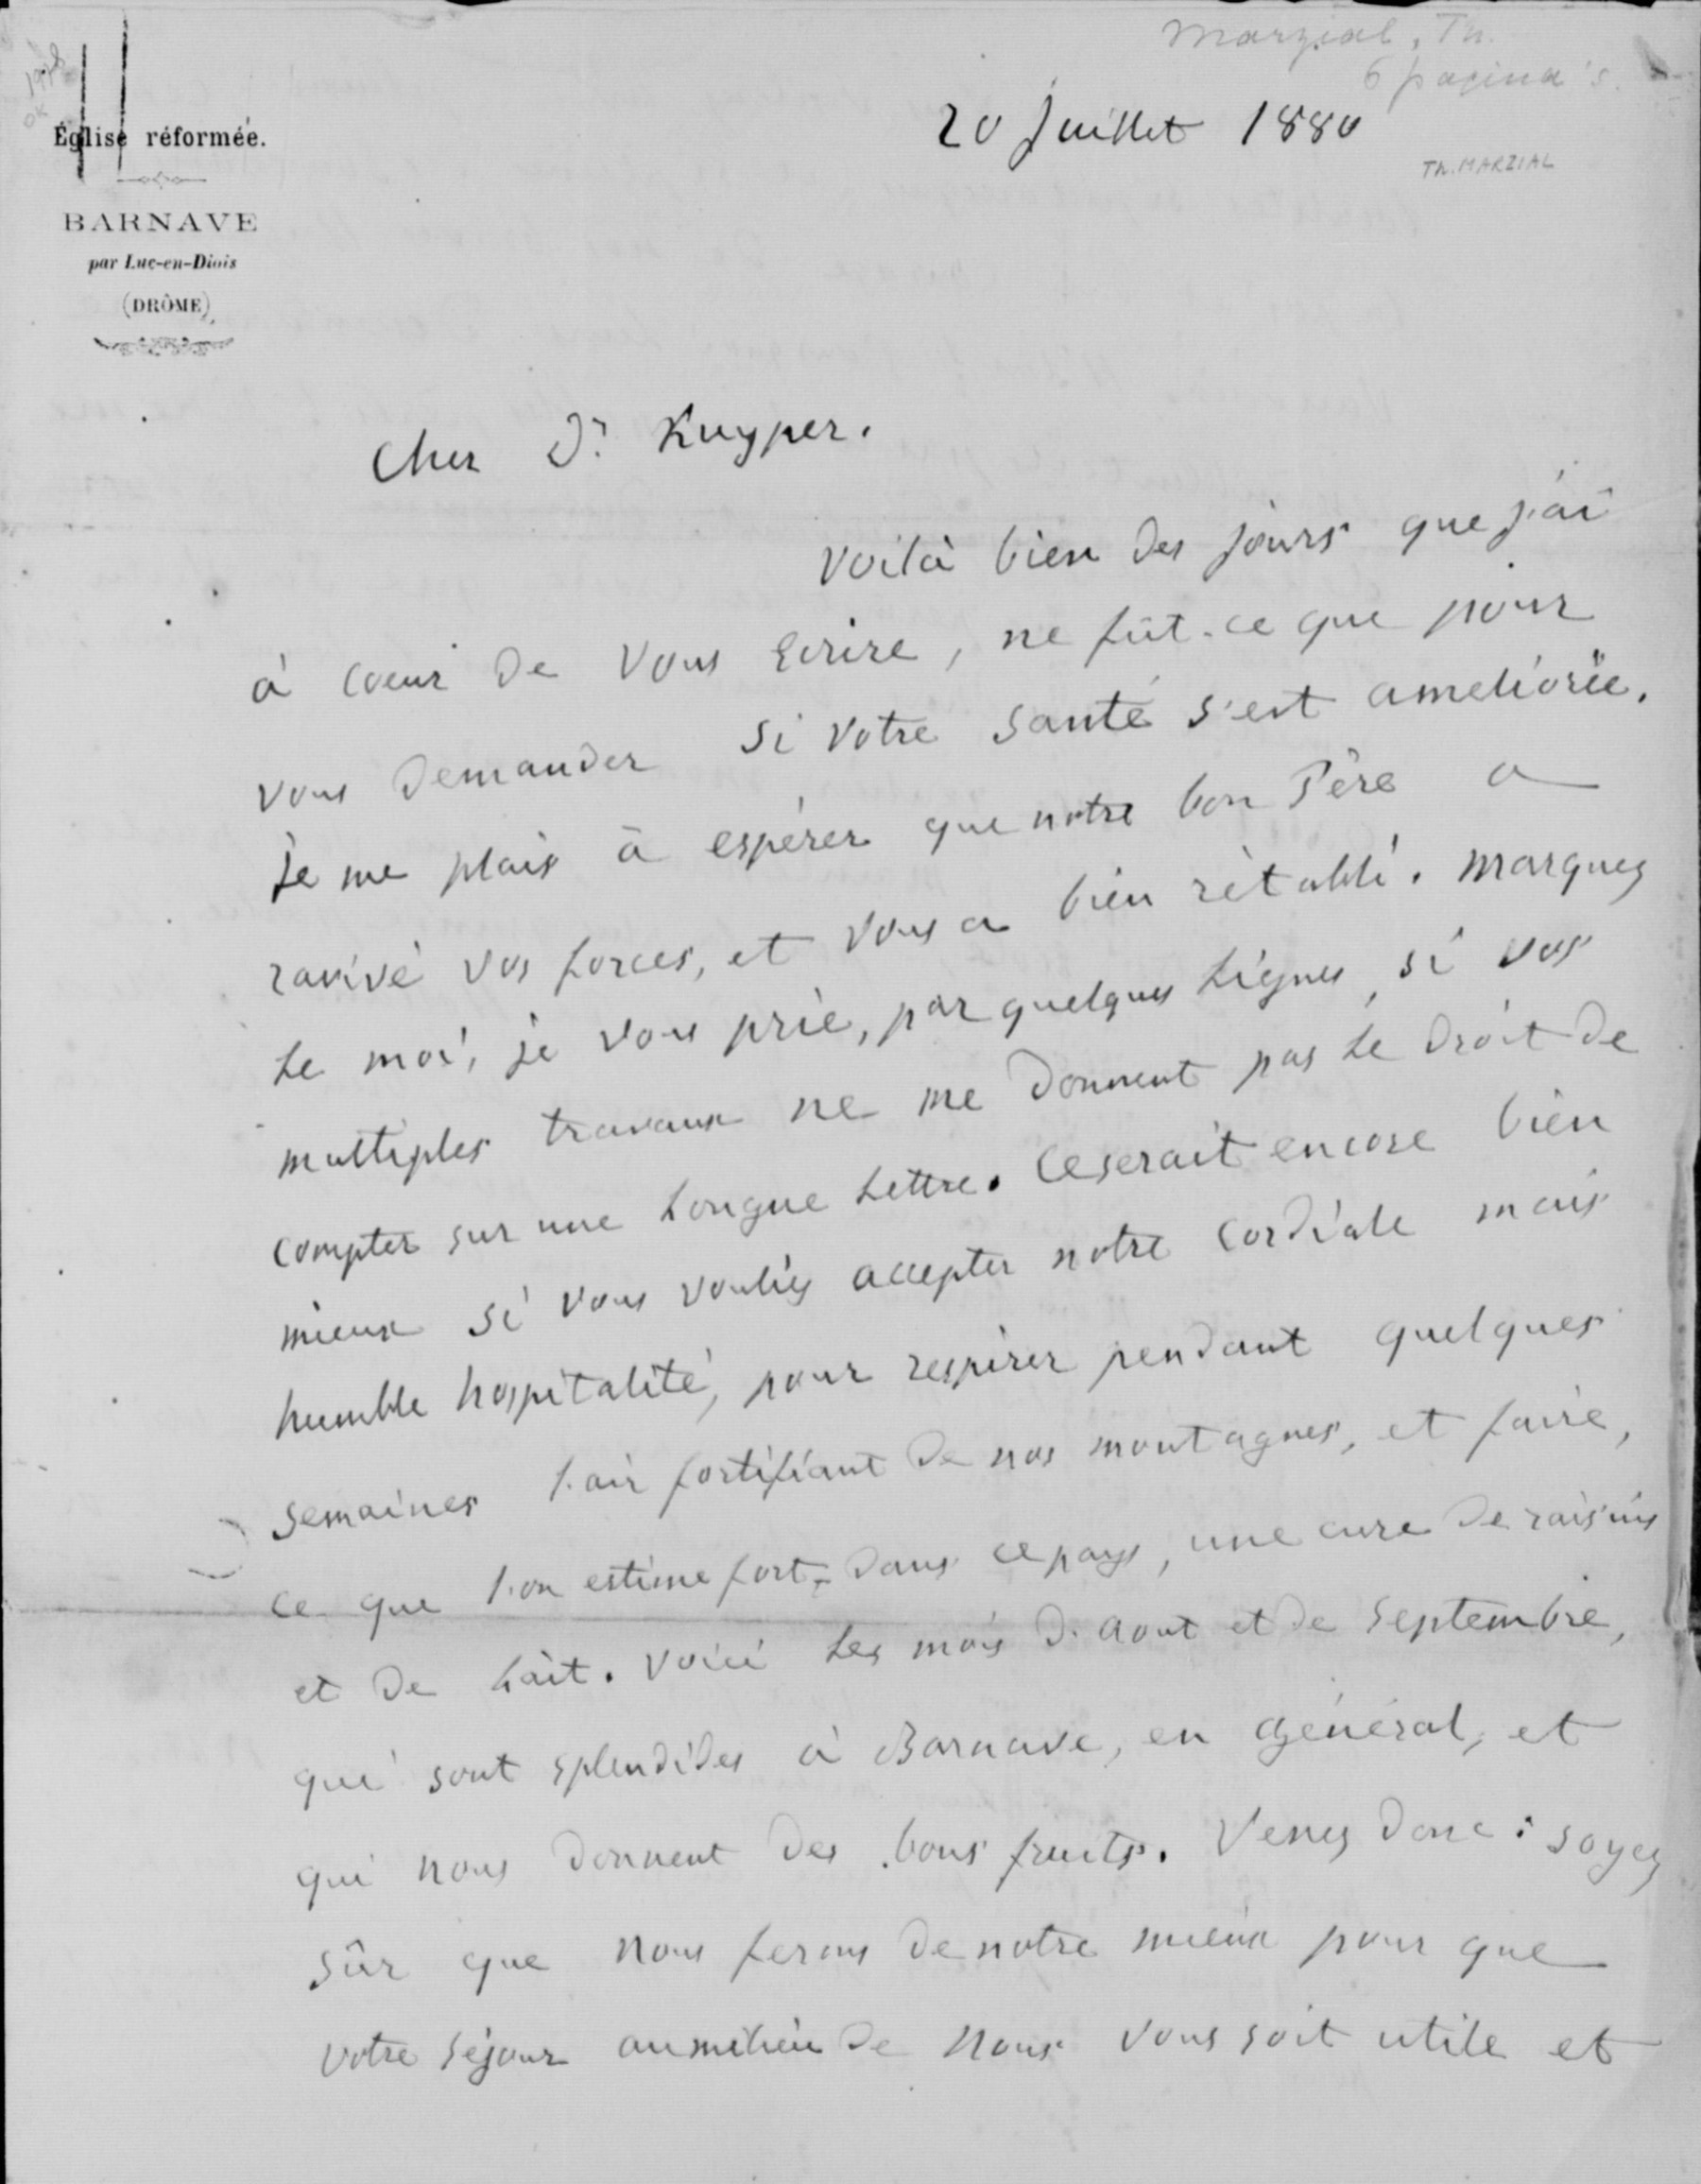 Marzial, Th.
6 pagina's.
1978
OK
Église réformée.
BARNAVE
par Luc-en-Diois
(DRÔME)
20 Juillet 1880
Th. MARZIAL
Cher Dr. Kuyper.
Voilà bien des jours que j'ai
à coeur de vous Ecrire, ne fût-ce que pour
vous demander si votre santé s'est ameliorée.
Je me plais à espérer que notre bon Père a
ravivé vos forces, et vous a bien rétabli. Marquez
le moi, je vous prie, par quelques lignes, si vos
multiples travaux ne me donnent pas le droit de
compter sur une longue lettre. Ce serait encore bien
mieux si vous vouliez accepter notre cordiale mais
humble hospitalité, pour respirer pendant quelques
semaines l'air fortifiant de nos montagnes, et faire,
ce que l'on estime fort dans ce pays, une cure de raisins
et de lait. Voici les mois d'aout et de Septembre,
qui sont splendides à Barnave, en général, et
qui nous donnent des bons fruits. Venez donc: soyez
sûr que nous ferons de notre mieux pour que
votre séjour au milieu de nous vous soit utile et